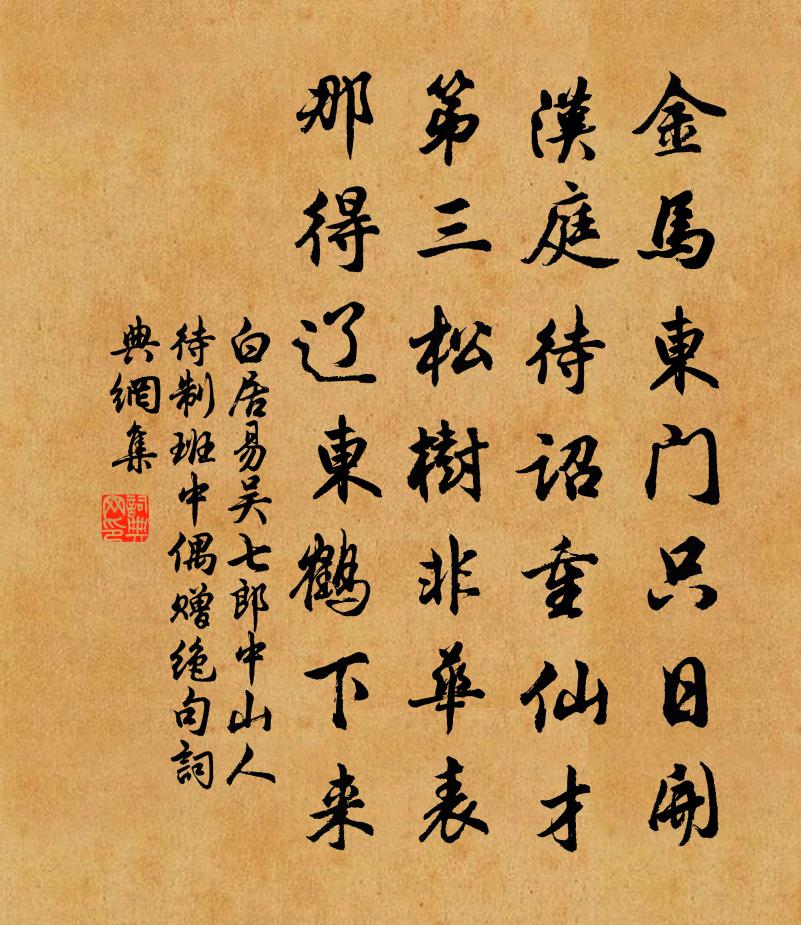 金馬東门只日開
漢庭待詔重仙才
第三松樹非華表
那得辽東鶴下来
白居易吴七郎中山人
待制班中偶赠绝句詞
典網集
詞典
网印